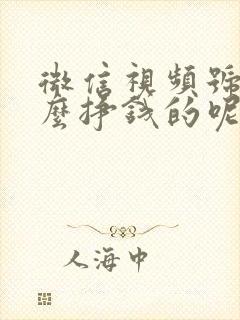 微信視頻號
麼掙錢的呢
人海中